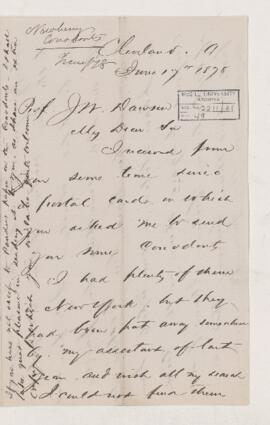 Newberry
Conodonts
June/78
Cleveland. O
June 17th 1878
McGILL UNIVERSITY
ARCHIVES
Prof J W. Dawson
My Dear Sir
I received from
you some time since
a postal card in which
you asked me to send
you some Conodonts
I had plenty of them
in New York. but they
had been put away somewhere
by my assistant of last
year and with all my search
I could not find them
If you have not access to Panders paper on the Conodonts I shall
take great pleasure in sending it to you as I have an extra
copy